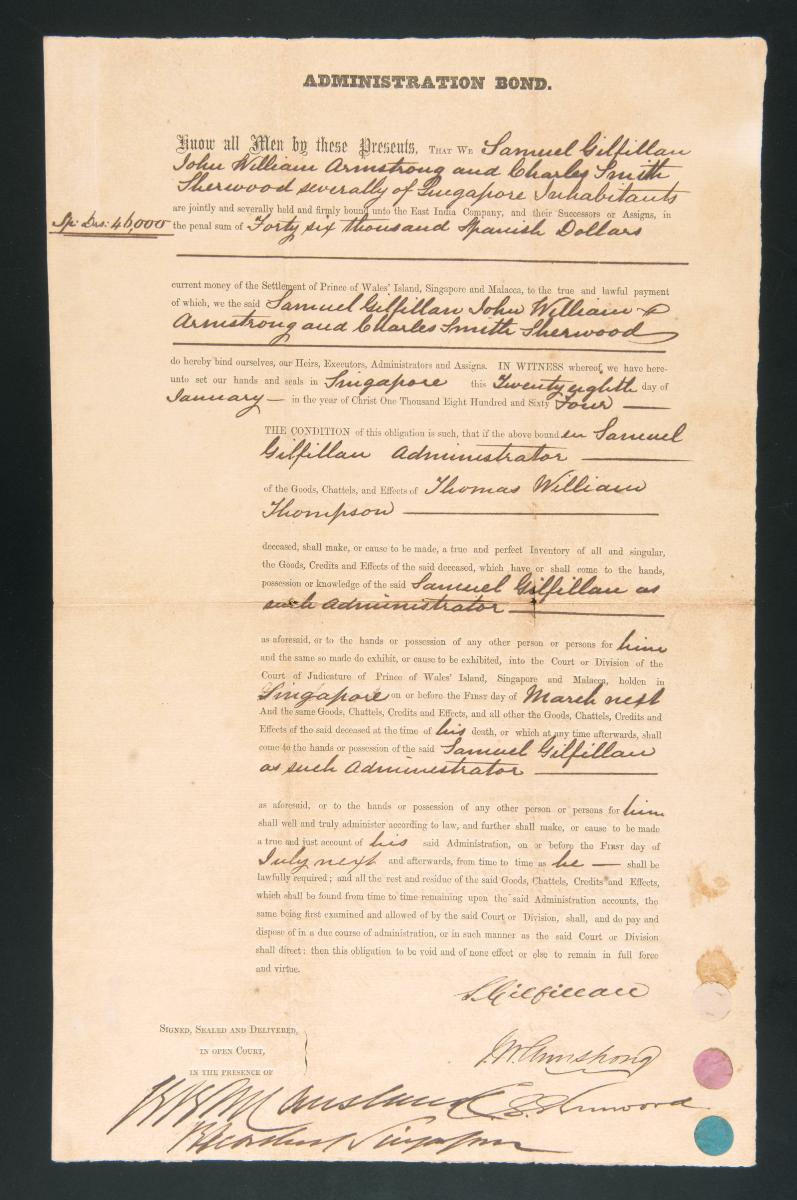 ADMINISTRATION BOND.
Know all Men by these Presents, THAT WE Samuel Gilfillan
John William Armstrong and Charles Smith
Sherwood severally of Singapore Inhabitants
are jointly and severally held and firmly bound unto the East India Company, and their Successors or Assigns, in
Sp: Drs: 46,000 the penal sum of Forty six thousand Spanish Dollars
current money of the Settlement of Prince of Wales' Island, Singapore and Malacca, to the true and lawful payment
of which, we the said Samuel Gilfillan John William
Armstrong and Charles Smith Sherwood
do hereby bind ourselves, our Heirs, Executors, Administrators and Assigns. IN WITNESS whereof, we have here-
unto set our hands and seals in Singapore this Twenty eighth day of
January in the year of Christ One Thousand Eight Hundred and Sixty Four
THE CONDITION of this obligation is such, that if the above bounden Samuel
Gilfillan Administrator
of the Goods, Chattels, and Effects of Thomas William
Thompson
deceased, shall make, or cause to be made, a true and perfect Inventory of all and singular,
the Goods, Credits and Effects of the said deceased, which have or shall come to the hands,
possession or knowledge of the said Samuel Gilfillan as
such Administrator
as aforesaid, or to the hands or possession of any other person or persons for him
and the same so made do exhibit, or cause to be exhibited, into the Court or Division of the
Court of Judicature of Prince of Wales' Island, Singapore and Malacca, holden in
Singapore on or before the FIRST day of March next
And the same Goods, Chattels, Credits and Effects, and all other the Goods, Chattels, Credits and
Effects of the said deceased at the time of his death, or which at any time afterwards, shall
come to the hands or possession of the said Samuel Gilfillan
as such Administrator
as aforesaid, or to the hands or possession of any other person or persons for him
shall well and truly administer according to law, and further shall make, or cause to be made
a true and just account of his said Administration, on or before the FIRST day of
July next and afterwards, from time to time as he shall be
lawfully required; and all the rest and residue of the said Goods, Chattels, Credits and Effects,
which shall be found from time to time remaining upon the said Administration accounts, the
same being first examined and allowed of by the said Court or Division, shall, and do pay and
dispose of in a due course of administration, or in such manner as the said Court or Division
shall direct: then this obligation to be void and of none effect or else to remain in full force
and virtue.
S. Gilfillan
SIGNED, SEALED AND DELIVERED,
IN OPEN COURT,
IN THE PRESENCE OF
J. W. Armstrong
C. S. Sherwood
Singapore